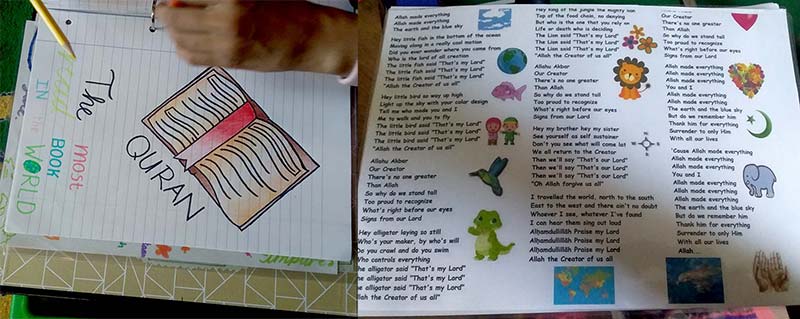 The most
read
BOOK
IN the
WORLD
QURAN
Allah made everything
Allah made everything
The earth and the sky
Hey little fish in the bottom of the ocean
Moving along in a really cool motion
Did you ever wonder where you came from
Who is the lord of all creation
The little fish said "That's my Lord"
The little fish said "That's my Lord"
The little fish said "That's my Lord"
"Allah the Creator of us all"
Hey little bird so way up high
Light up the sky with your color design
Tell me who made you and I
Me to walk and you to fly
The little bird said "That's my Lord"
The little bird said "That's my Lord"
The little bird said "That's my Lord"
"Allah the Creator of us all"
Allahu Akbar
Our Creator
There's no one greater
Than Allah
So why do we stand tall
Too proud to recognize
What's right before our eyes
Signs from our Lord
Hey alligator laying so still
Who's your maker, by who's will
Do you crawl and do you swim
Who controls everything
he alligator said "That's my Lord"
he alligator said "That's my Lord"
he alligator said "That's my Lord"
llah the Creator of us all"
Hey king of the jungle the mighty lion
Top of the food chain, no denying
But who is the one that you rely on
Life or death who is deciding
The Lion said "That's my Lord"
The Lion said "That's my Lord"
The Lion said "That's my Lord"
"Allah the Creator of us all"
Allahu Akbar
Our Creator
There's no one greater
Than Allah
So why do we stand tall
Too proud to recognize
What's right before our eyes
Signs from our Lord
Hey my brother hey my sister
See yourself as self sustainer
Don't you see what will come lat
We all return to the Creator
Then we'll say "That's our Lord"
Then we'll say "That's our Lord"
Then we'll say "That's our Lord"
"Oh Allah forgive us all"
I travelled the world, north to the south
East to the west and there ain't no doubt
Whoever I see, whatever I've found
I can hear them sing out loud
Alḥamdulillāh Praise my Lord
Alḥamdulillāh Praise my Lord
Alḥamdulillāh Praise my Lord
Allah the Creator of us all
Our Creator
There's no one greater
Than Allah
So why do we stand tall
Too proud to recognize
What's right before our eyes
Signs from our Lord
Allah made everything
Allah made everything
Allah made everything
You and I
Allah made everything
Allah made everything
The earth and the blue sky
But do we remember him
Thank him for everything
Surrender to only Him
With all our lives
'Cause Allah made everything
Allah made everything
Allah made everything
You and I
Allah made everything
Allah made everything
Allah made everything
The earth and the blue sky
But do we remember
Thank him for everything
Surrender to only Him
With all our lives
Allah....